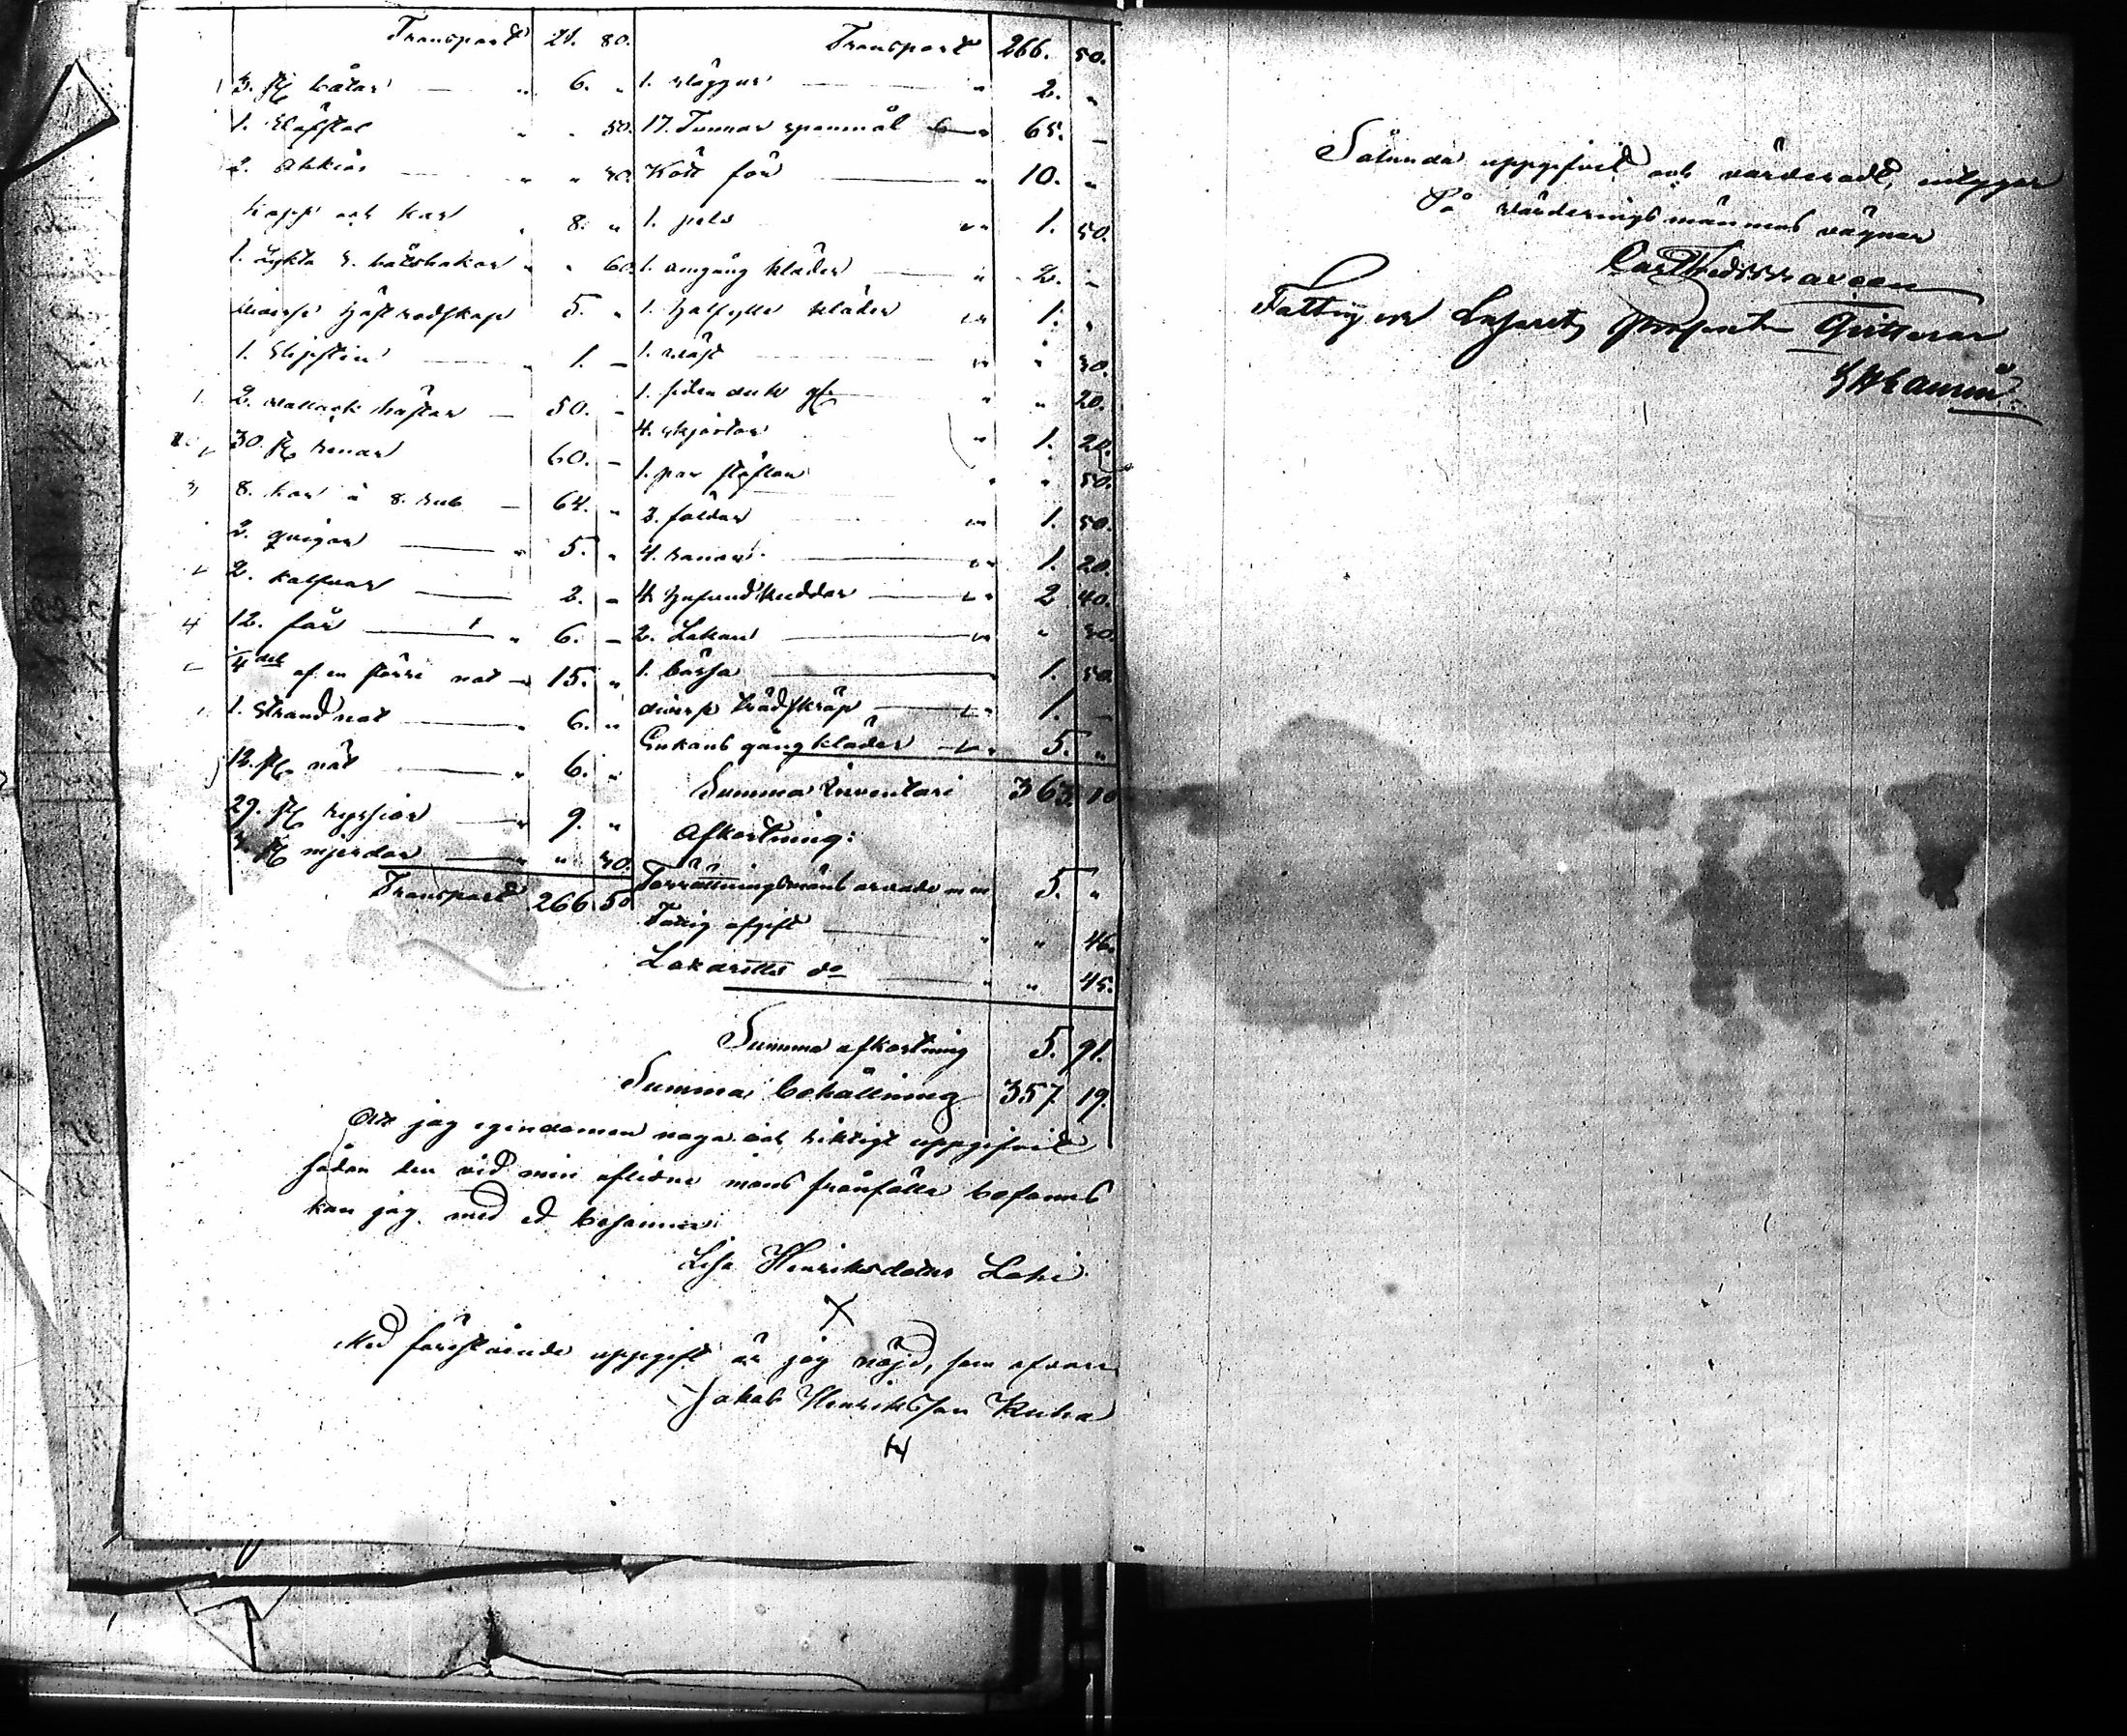 Transport 21. 80.
3. st båtar " 6. "
1. Släfstol " " 50.
2. Akkior " " 30.
kopp och kar " 8. "
1. lykta 3. båtshakar " " 60.
diverse häst redskap 5. "
1. Slipsten " 1. –
2. vallack hästar – 50. –
30. st renar 60. –
8. kor à 8. rub – 64. "
2. qvigor " 5. "
2. kalfvar 2. –
12. får " 6. –
4 del af en större not " 15. "
1. Strand not " 6. "
12. st. nät " 6. "
29. st ryssior " 9. "
3. st mjerdar " " 30.
Transport 266 50
Transport 266. 50.
1. slägga " 2. "
17. Tunnor spanmål " 65. –
Kött för " 10. "
1. pels " 1. 50.
1. omgång kläder " 2. –
1. Halfylle kläder " 1. "
1. väst " " 30.
1. siden duk " " 20.
4. skjortor " 1. 20.
1. par stöflar " " 50.
3. fäldar " 1. 50.
4. ranor " 1. 20.
4 hufvudkuddar " 2 40.
2. Lakan " " 30
1. bössa 1. 50.
diverse trädskräp " 1. –
Enkans gångkläder " 5. "
Summa Inventari 363. 10
Afkortning:
Förrättningsmäns arvode m m 5. "
Fattig afgift " " 46.
Lazaretts do " " 45.
Summa afkortning 5. 91.
Summa behållning 357. 19.
Att jag egendomen noga och riktigt uppgifvit
sådan den vid min aflidne mans frånfälle befanns
kan jag med ed besanna
Lisa Henriksdotter Lahi
X
Med förestående uppgift är jag nöjd, som
Jakob Henriksson Kuha
Sålunda uppgifvit och värderadt, intygar
På värderingsmännens vägnar
Carl
Fattig och Lasaretts Procenten Qvitteras